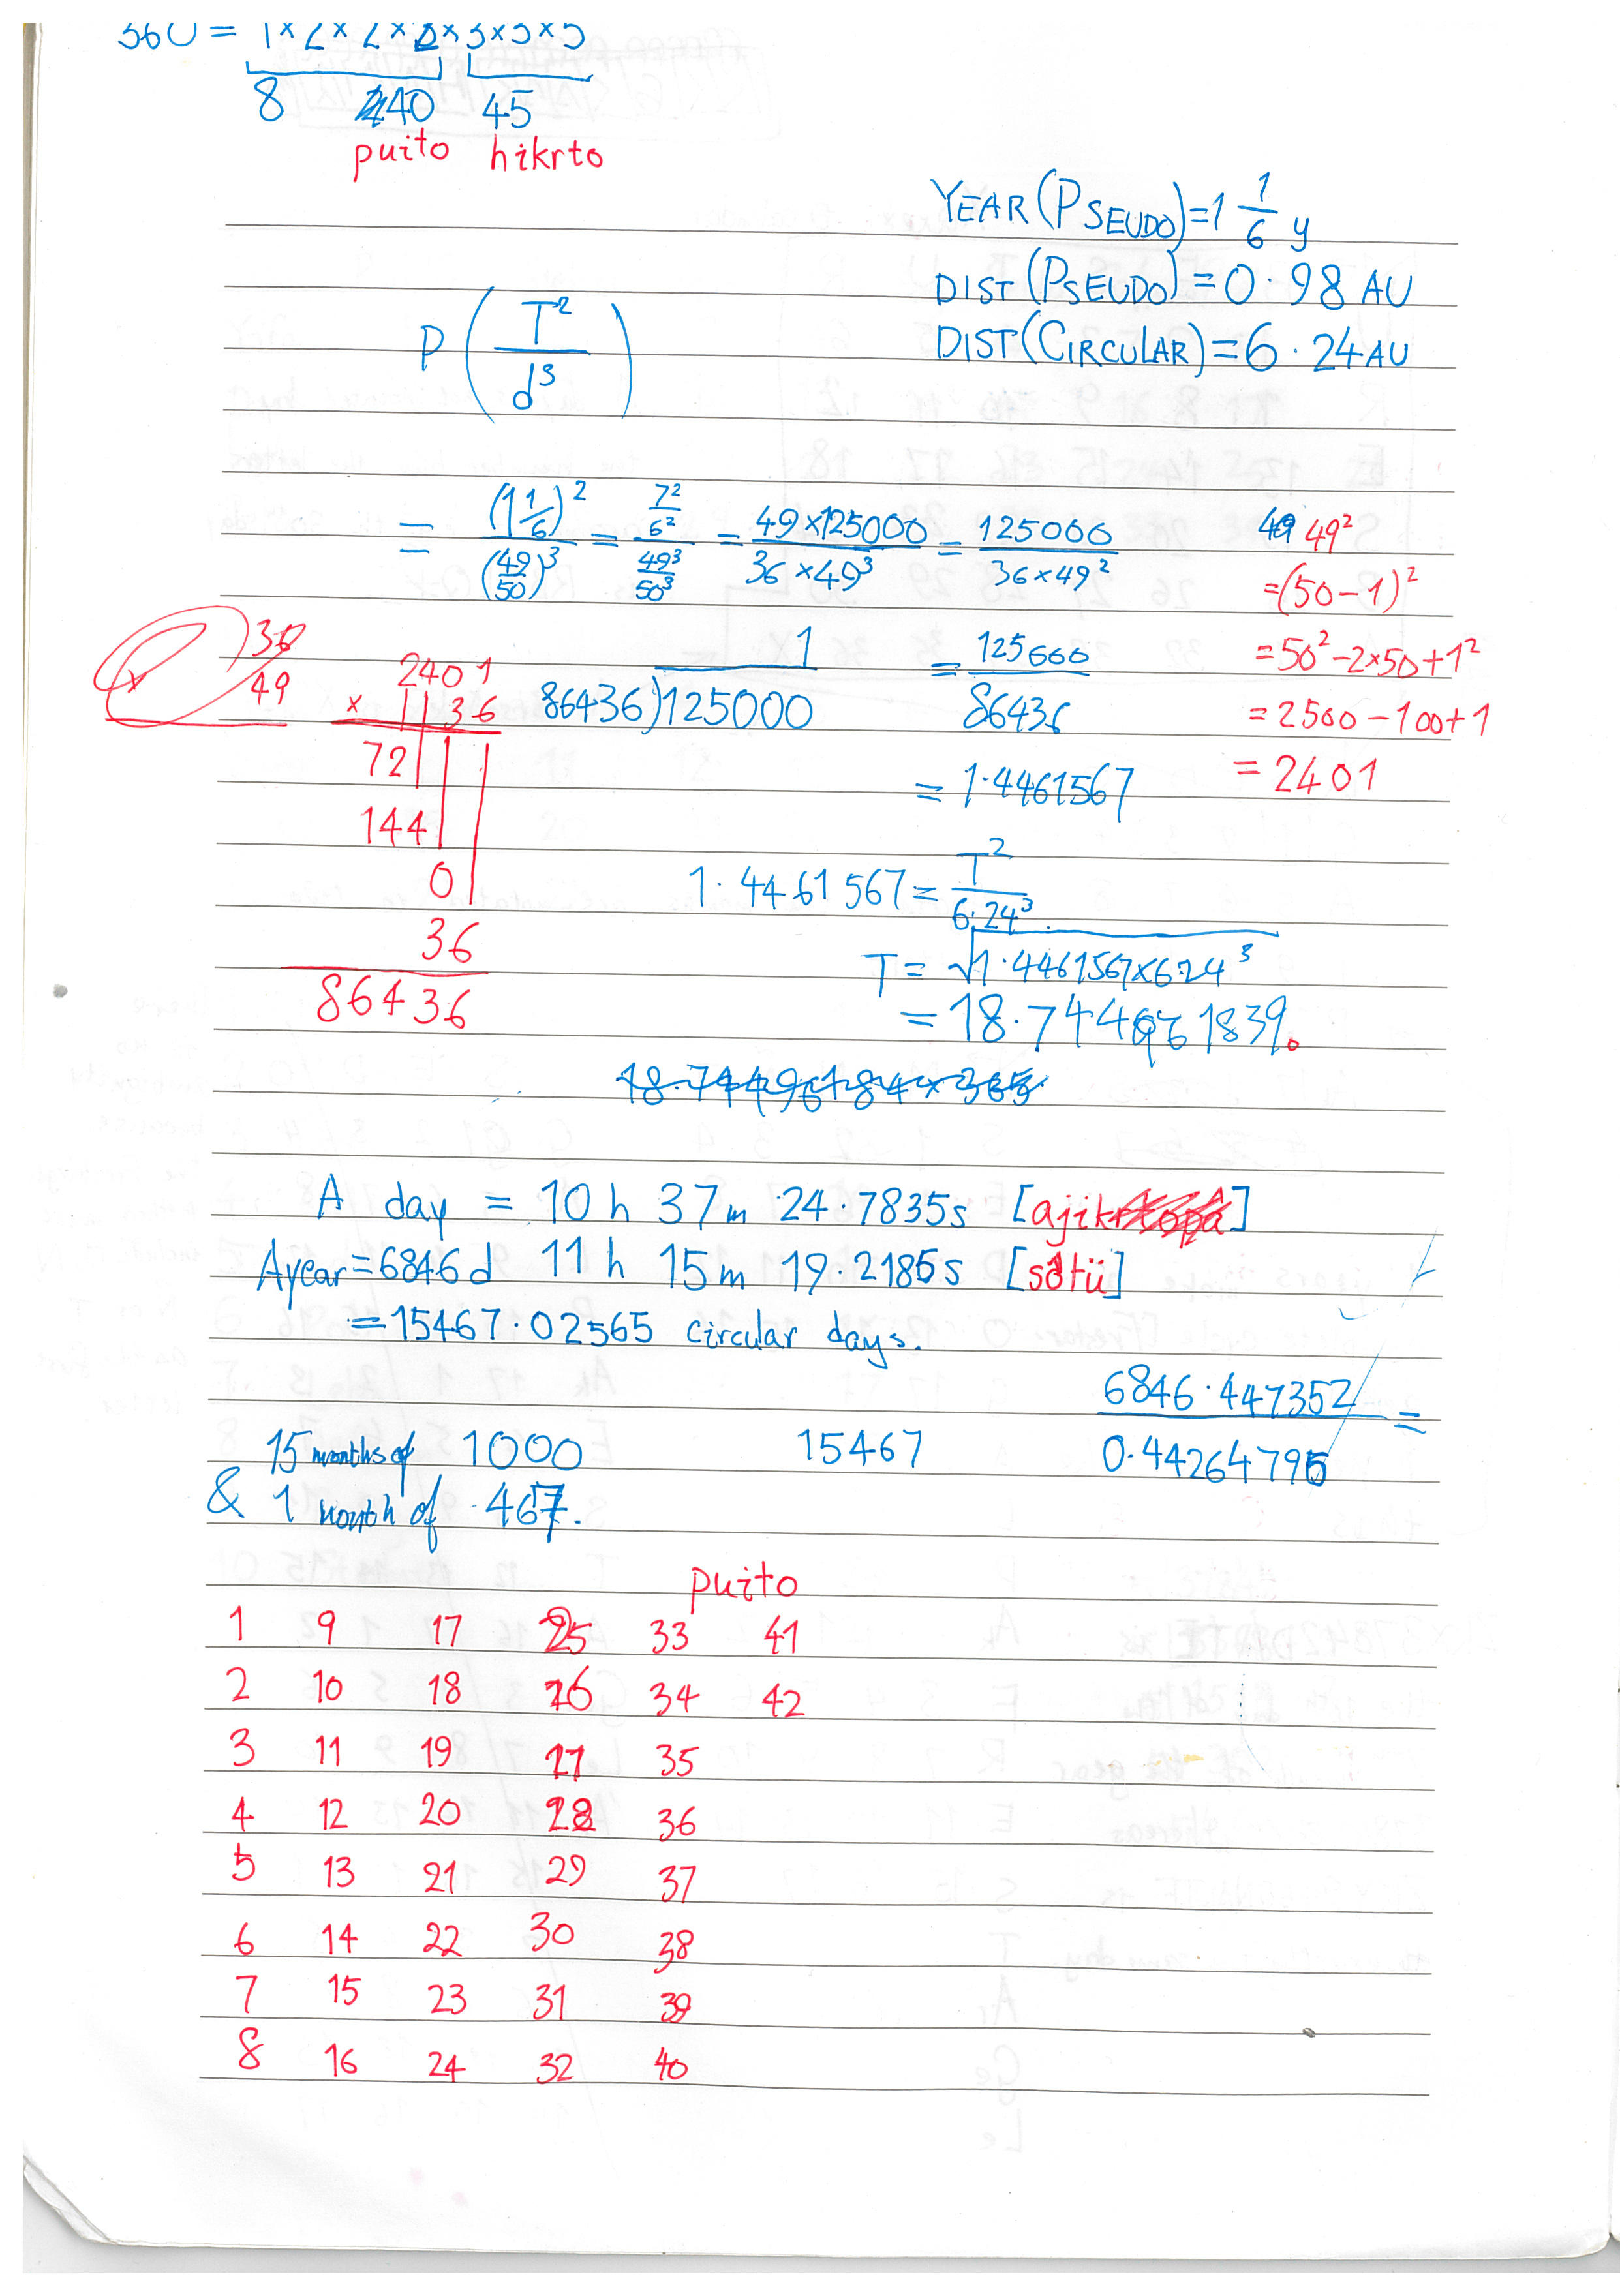 360 = 1×2×2×2×3×3×5
8 40 45
puito hikrto
YEAR (PSEUDO) = 1 1/6 y
DIST (PSEUDO) = 0.98 AU
DIST (CIRCULAR) = 6.24 AU
P (T²/d³)
= (1 1/6)²/(49/50)³ = 7²/6²/49³/50³ = 49×125000/36×49³ = 125000/36×49²
49 49²
=(50-1)²
=50²-2×50+1²
=2500-100+1
=2401
36
× 49
2401
× 36
72
144
0
36
86436
1
86436)125000
= 125000/86436
= 1.4461567
1.4461567 = T²/6.24³
T = √1.4461567×6.24³
= 18.744961839.
18.74496184×365
A day = 10h 37m 24.7835s [ajik]
A year = 6846d 11h 15m 19.2185s [sâtü]
= 15467.02565 circular days.
6846.447352/0.442647955 =
15 months of 1000 15467
& 1 month of 467.
puito
1 9 17 25 33 41
2 10 18 26 34 42
3 11 19 27 35
4 12 20 28 36
5 13 21 29 37
6 14 22 30 38
7 15 23 31 39
8 16 24 32 40